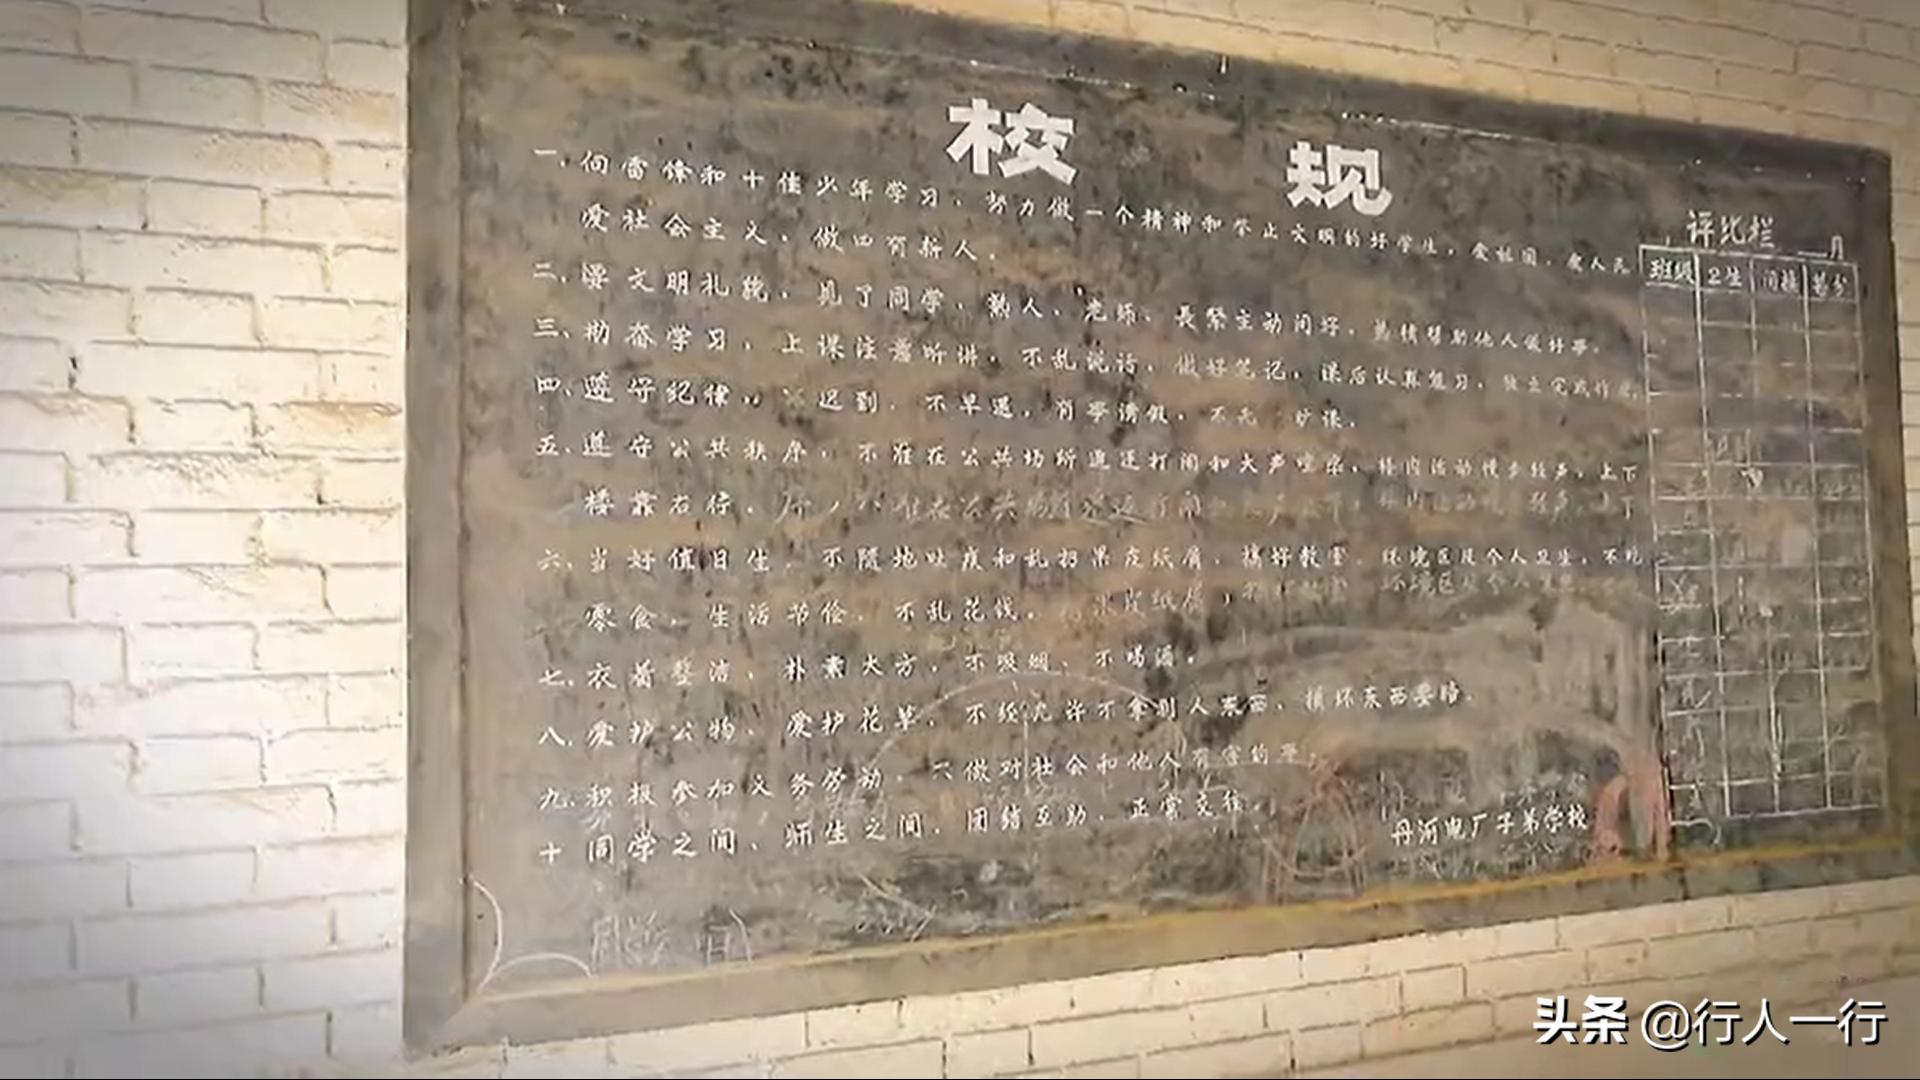 校 规
一、向雷锋和十佳少年学习，努力做一个精神和举止文明的好学生，爱祖国、爱人民
爱社会主义，做四有新人。
二、要文明礼貌，见了同学、熟人、老师、长辈主动问好，热情帮助他人做好事。
三、勤奋学习，上课注意听讲，不乱说话，做好笔记，课后认真复习，独立完成作业。
四、遵守纪律，迟到，不早退，有事请假，不旷课。
五、遵守公共秩序，不准在公共场所追逐打闹和大声喧哗，楼内活动慢步轻声，上下
楼靠右行。
六、当好值日生，不随地吐痰和乱扔果皮纸屑，搞好教室、环境区及个人卫生，不吃
零食，生活节俭，不乱花钱。
七、衣着整洁，朴素大方，不吸烟、不喝酒。
八、爱护公物、爱护花草，不经允许不拿别人东西，损坏东西要赔。
九、积极参加义务劳动，不做对社会和他人有害的事。
十 同学之间、师生之间，团结互助，正常交往。
丹河电厂子弟学校
评比栏 月
班级 卫生 间操 总分
头条 @行人一行